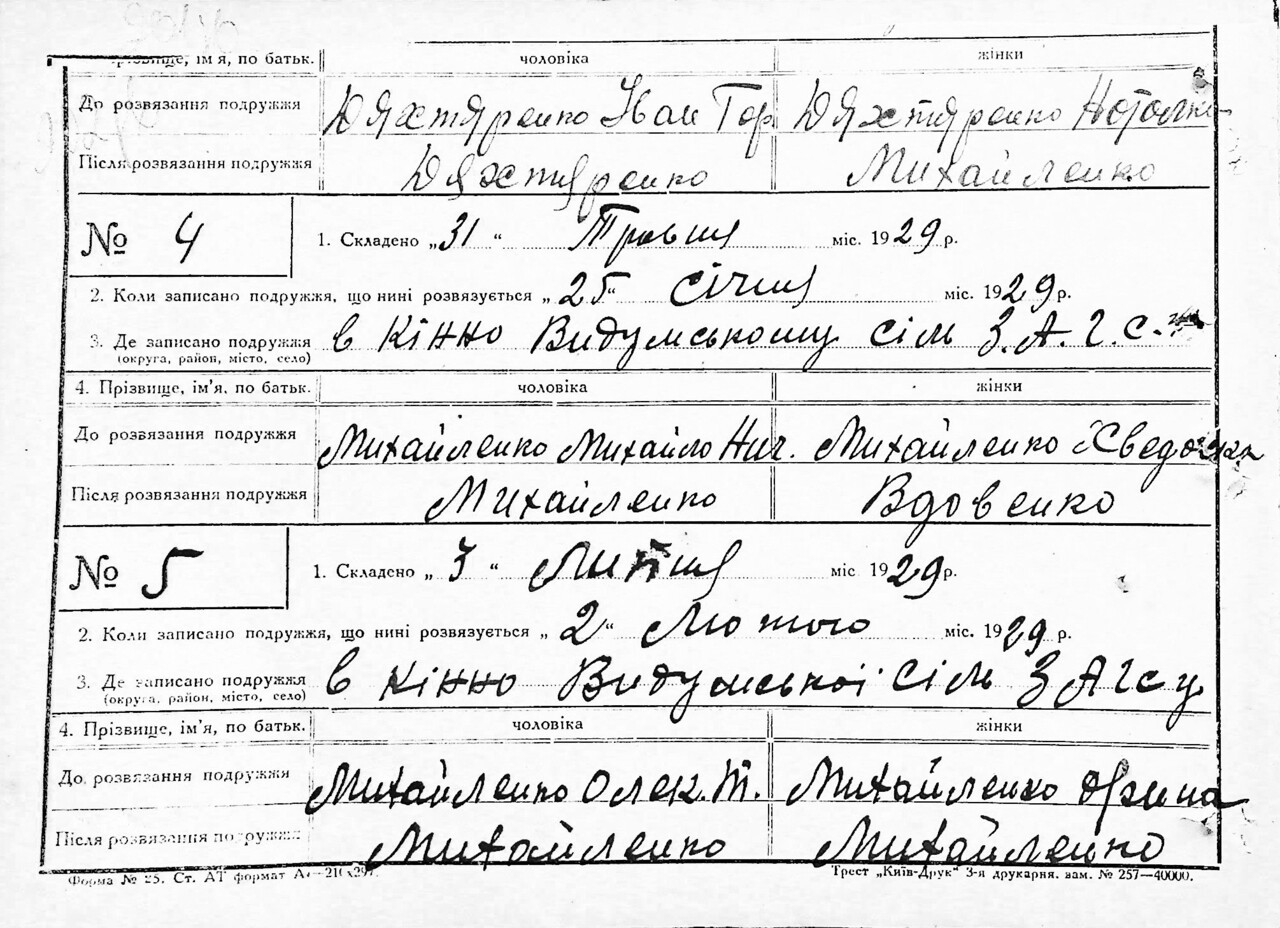 Прізвище, ім'я, по батьк. чоловіка жінки
До розвязання подружжя Дяхтяренко Іван Гор. Дяхтяренко Наталка
Після розвязання подружжя Дяхтяренко Михайленко
№ 4 1. Складено „31“ Травня міс. 1929 р.
2. Коли записано подружжя, що нині розвязується „25“ Січня міс. 1929 р.
3. Де записано подружжя в Кінно Видумському сіль З.А.Г.С.
(округа, район, місто, село)
4. Прізвище, ім'я, по батьк. чоловіка жінки
До розвязання подружжя Михайленко Михайло Нич. Михайленко Хведоська
Після розвязання подружжя Михайленко Вдовенко
№ 5 1. Складено „3“ Липня міс 1929 р.
2. Коли записано подружжя, що нині розвязується „2“ Лютого міс. 1929 р.
3. Де записано подружжя в Кінно Видумської сіль ЗАГСу
(округа, район, місто, село)
4. Прізвище, ім'я, по батьк. чоловіка жінки
До розвязання подружжя Михайленко Олек. Т. Михайленко Ярина
Після розвязання подружжя Михайленко Михайленко
Форма № 25. Ст. АТ формат А4—210x297. Трест „Київ-Друк“ 3-я друкарня. зам. № 257—40000.